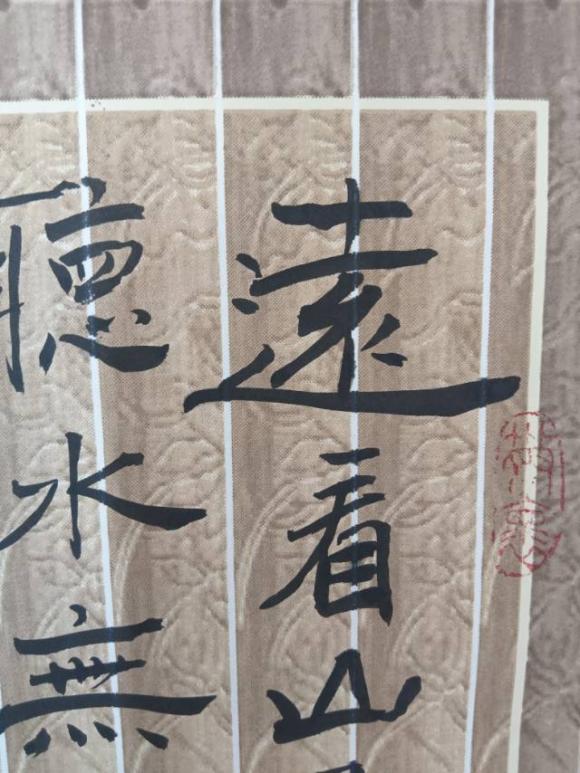 遠看山
聽水無